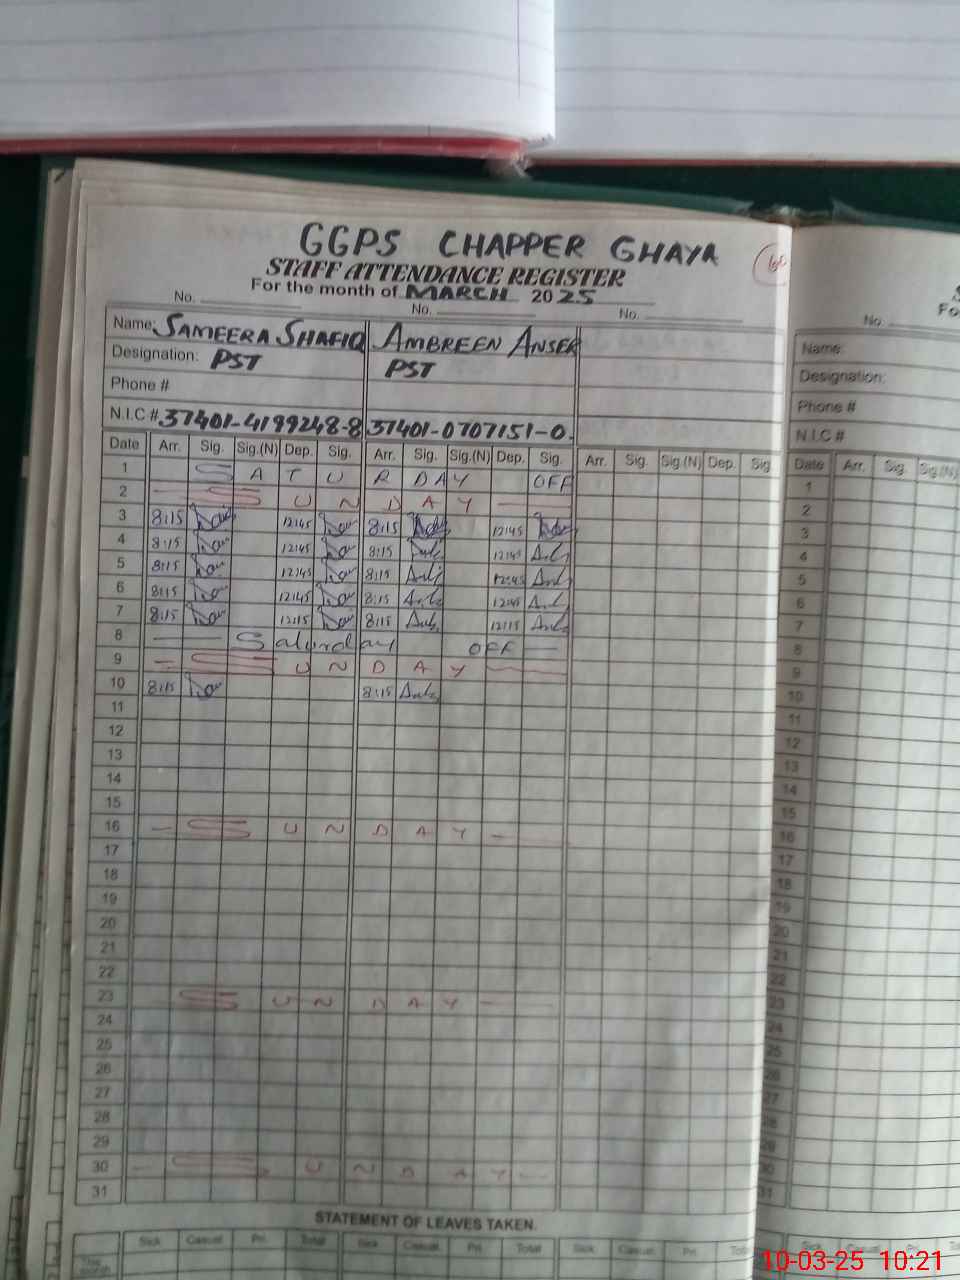 GGPS CHAPPER GHAYA
STAFF ATTENDANCE REGISTER
For the month of MARCH 2025
No. No. No.
Name: SAMEERA SHAFIQ AMBREEN ANSER
Designation: PST PST
Phone #
N.I.C # 37401-4199248-8 37401-0707151-0
Date Arr. Sig. Sig.(N) Dep. Sig. Arr. Sig. Sig.(N) Dep. Sig. Arr. Sig. Sig.(N) Dep. Sig
1 SATURDAY OFF
2 SUNDAY
3 8:15 12:45 8:15 12:45
4 8:15 12:45 8:15 12:45
5 8:15 12:45 8:15 12:45
6 8:15 12:45 8:15 12:45
7 8:15 12:15 8:15 12:15
8 Saturday OFF
9 SUNDAY
10 8:15 8:15
11
12
13
14
15
16 SUNDAY
17
18
19
20
21
22
23 SUNDAY
24
25
26
27
28
29
30 SUNDAY
31
STATEMENT OF LEAVES TAKEN.
Sick Casual Pri. Total Sick Casual Pri. Total Sick Casual Pri.
This month
No.
Name:
Designation:
Phone #
N.I.C #
Date Arr. Sig. Sig.(N)
1
2
3
4
5
6
7
8
9
10
11
12
13
14
15
16
17
18
19
20
21
22
23
24
25
26
27
28
29
30
31
Sick Casual Pri. Total
10-03-25 10:21